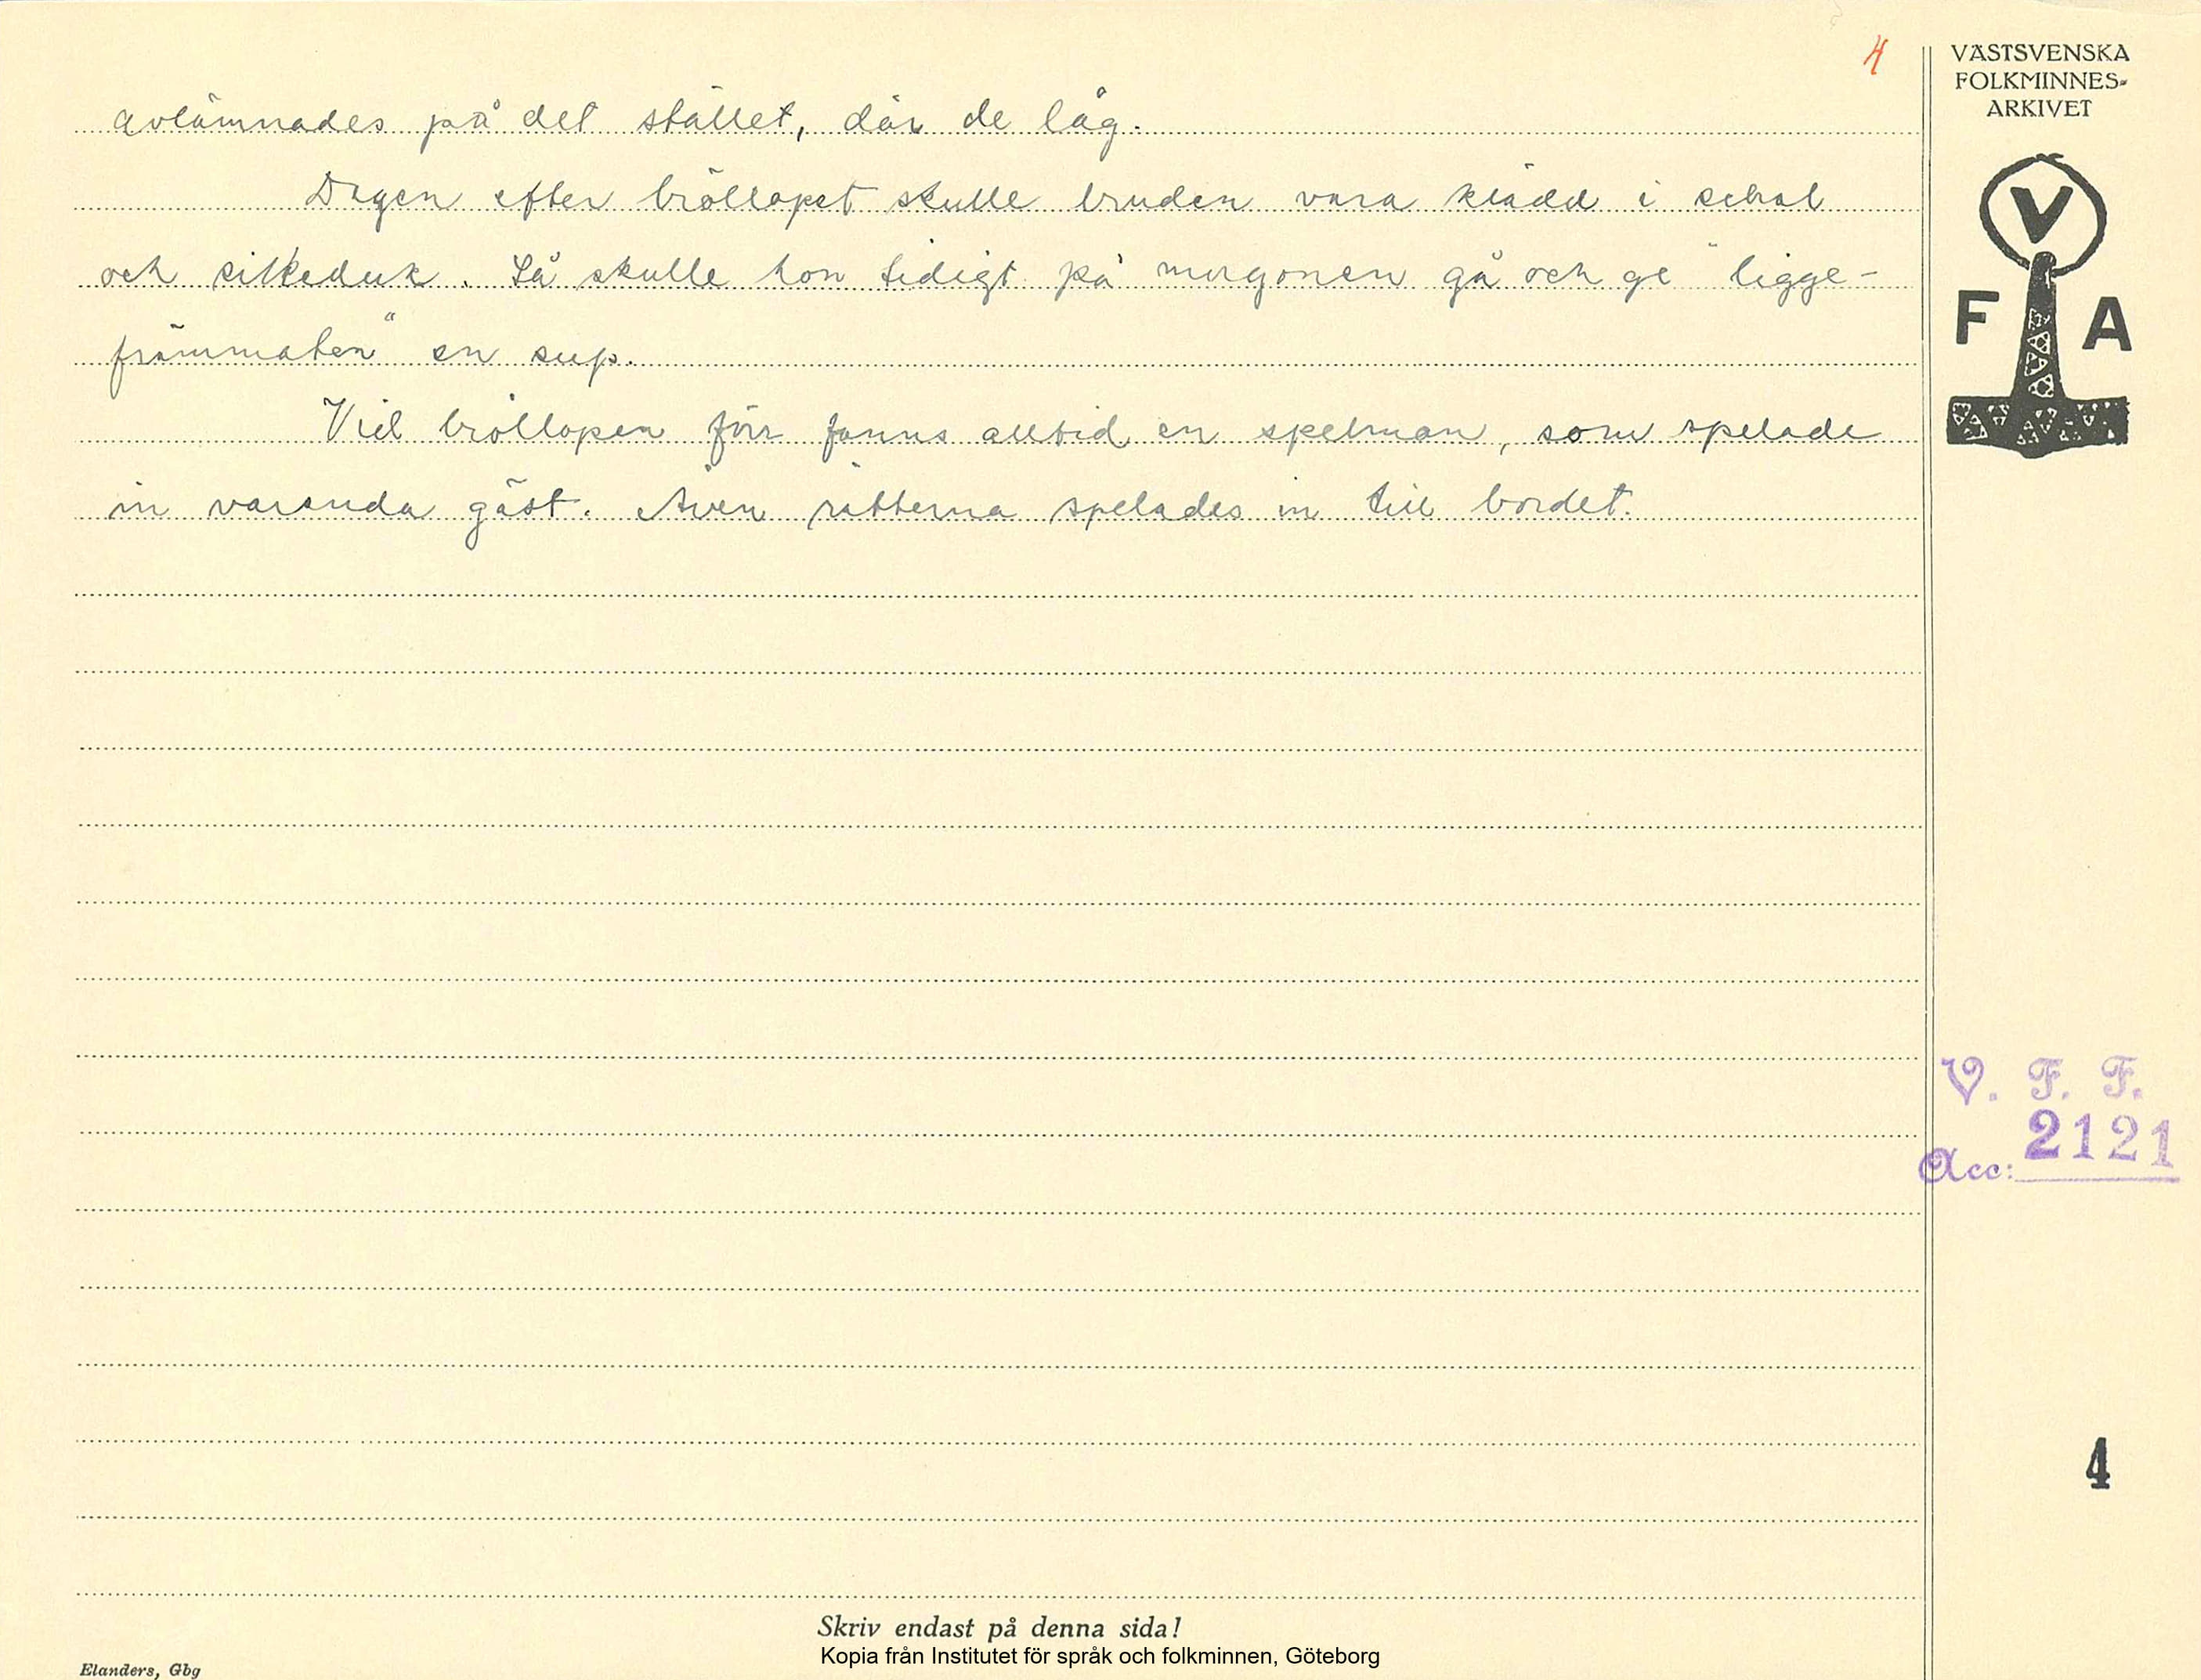 4
VÄSTSVENSKA
FOLKMINNES-
ARKIVET
V
F A
avlämnades på det stället, där de låg.
Dagen efter bröllopet skulle bruden vara klädd i schal
och silkeduk. Så skulle hon tidigt på morgonen gå och ge "ligge-
främmaten" en sup.
Vid bröllopen förr fanns alltid en spelman, som spelade
in varenda gäst. Även rätterna spelades in till bordet.
V. F. F.
Acc: 2121
4
Skriv endast på denna sida!
Kopia från Institutet för språk och folkminnen, Göteborg
Elanders, Gbg